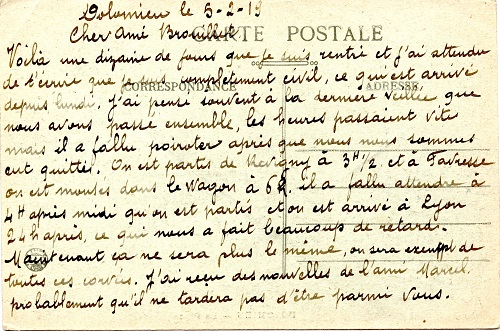 Dolomieu le 5-2-19
CARTE POSTALE
Cher Amé Brouillet
Voilà une dizaine de jours que je suis rentré et j'ai attendu
de t'écrire que je sois complètement civil, ce qui est arrivé
CORRESPONDANCE ADRESSE
depuis lundi, j'ai pensé souvent à la dernière veillée que
nous avons passé ensemble, les heures passaient vite
mais il a fallu poiroter après que nous nous sommes
eut quittés. On est partis de Revigny à 3H1/2 et à
on est montés dans le Wagon à 6h. il a fallu attendre à
4H après midi qu'on est partis et on est arrivé à Lyon
24h après, ce qui nous a fait beaucoup de retard.
Maintenant ça ne sera plus le même, on sera exempt de
toutes ces corvés. J'ai reçu des nouvelles de l'ami Marcel.
probablement qu'il ne tardera pas d'être parmi Vous.